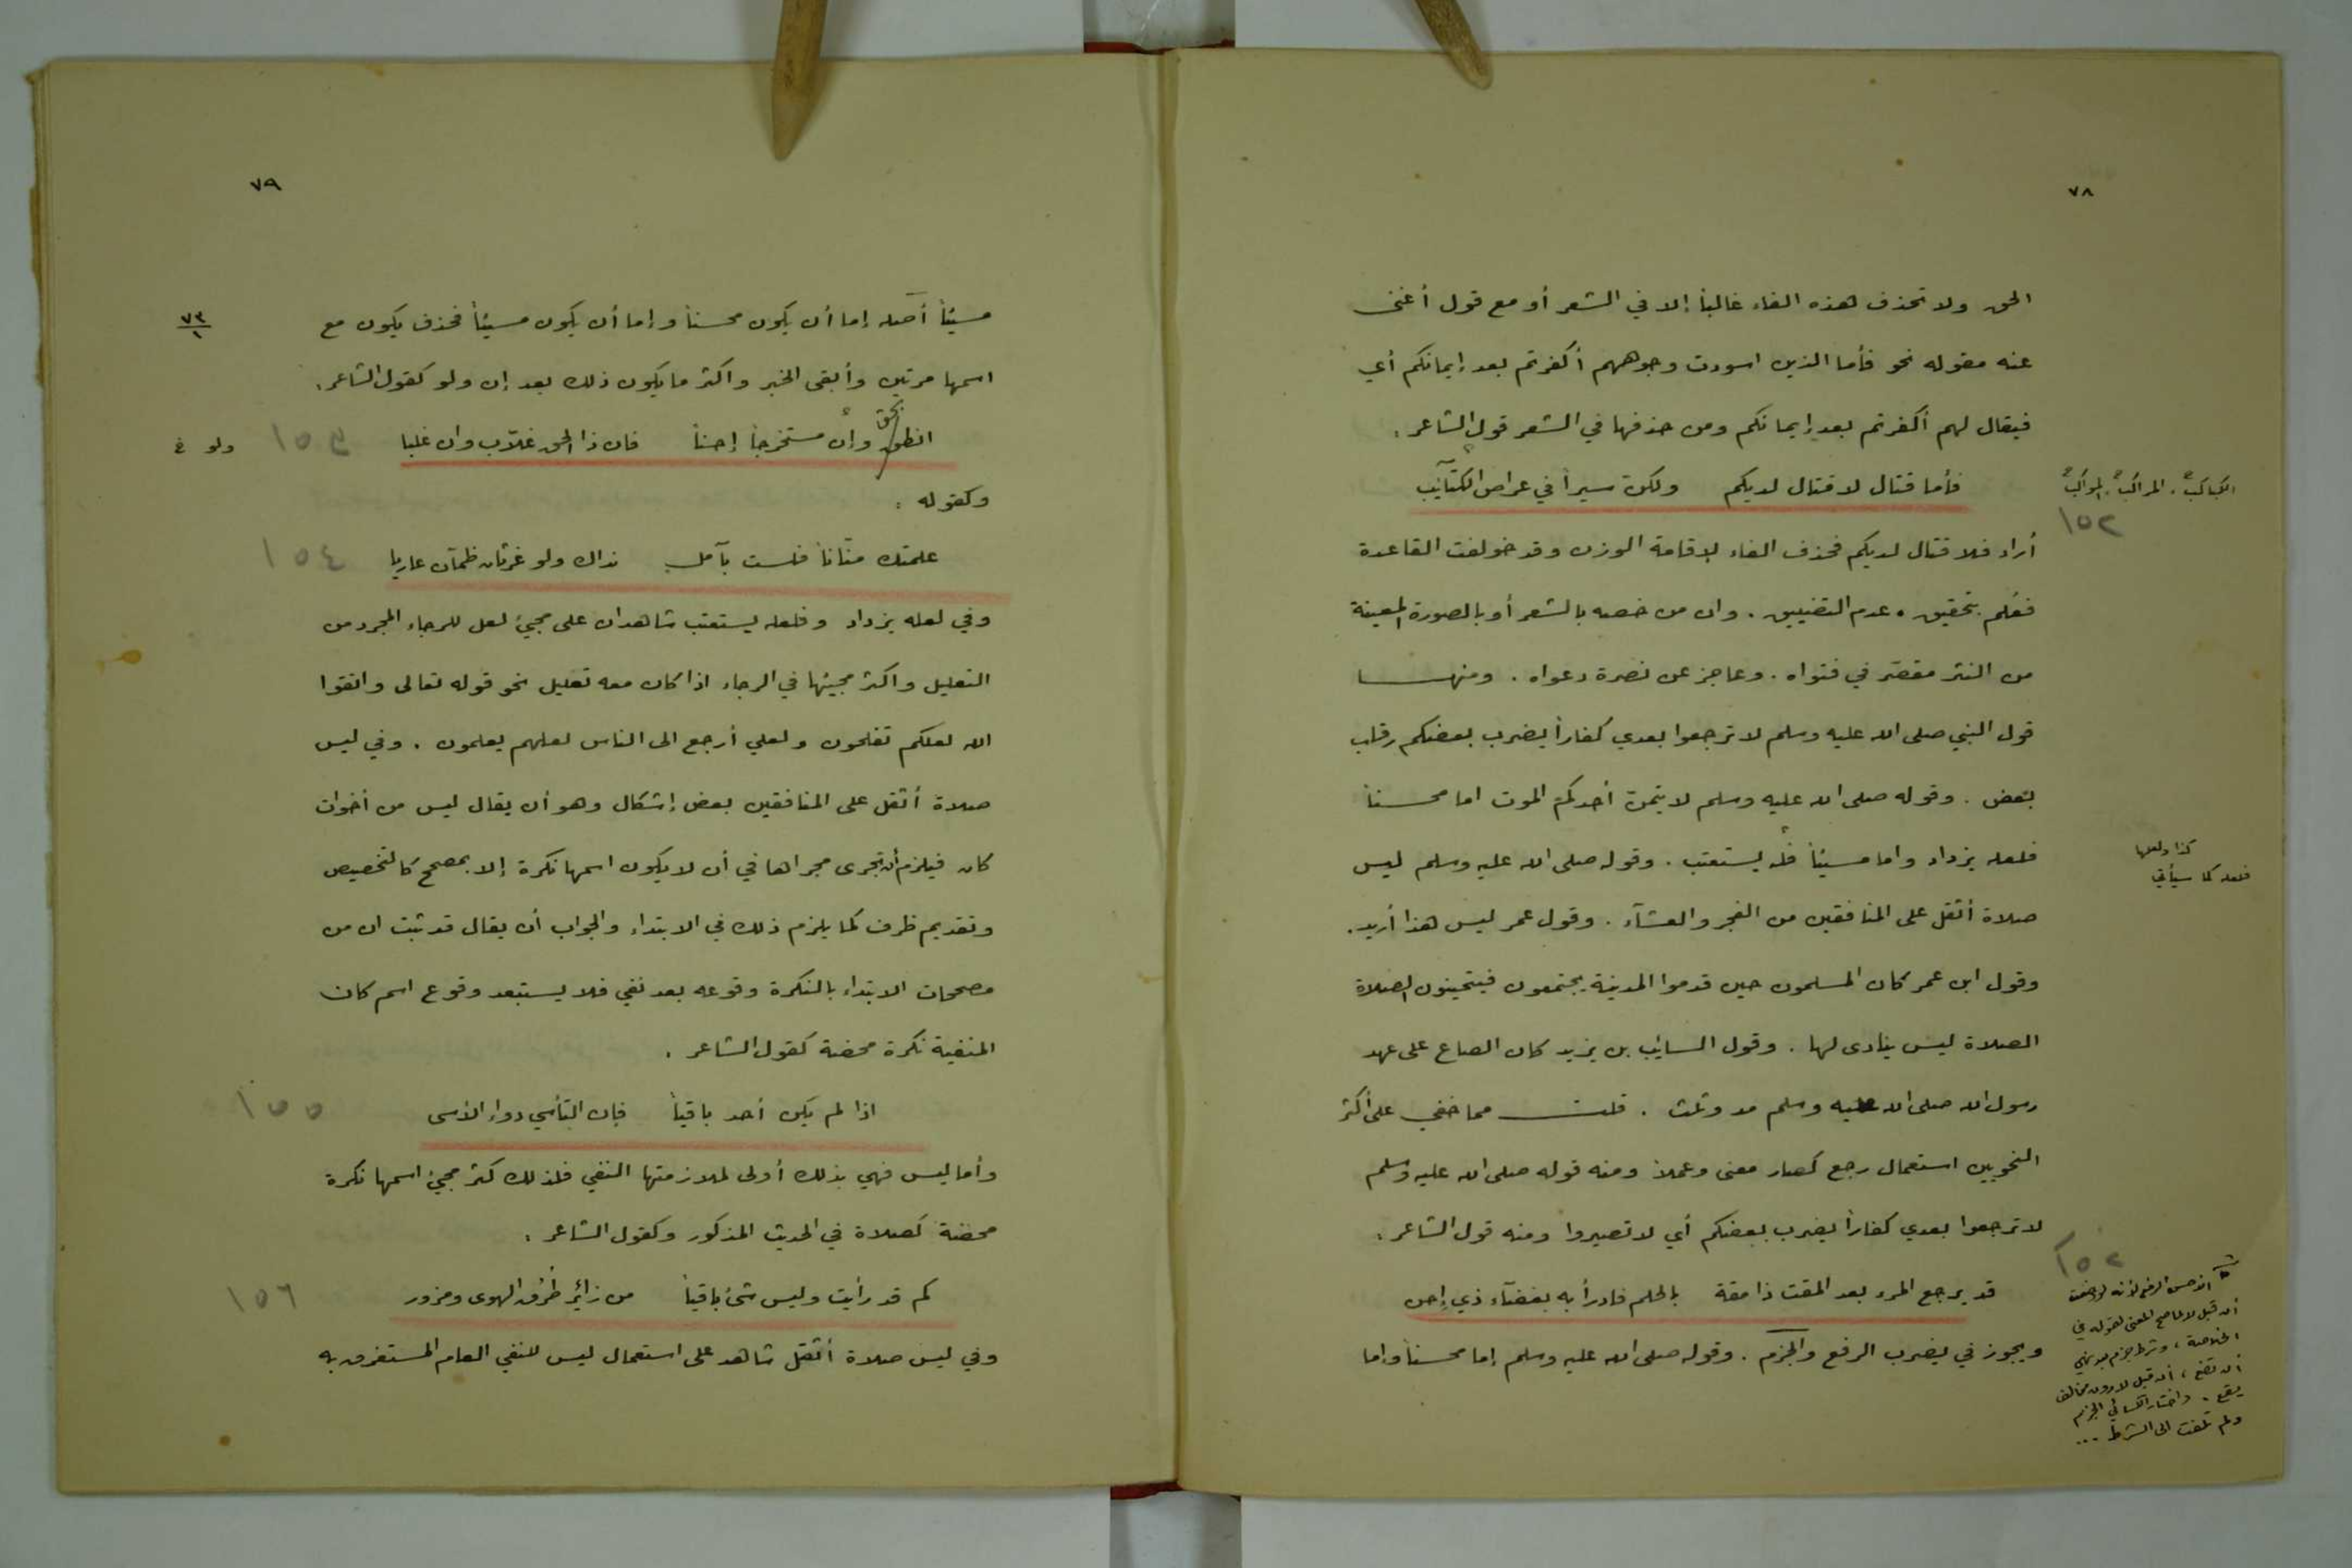 ٧٨
الحق ولا تحذف هذه الفاء غالباً إلا في الشعر أو مع قول أغنى
عنه مقوله نحو فأما الذين اسودت وجوههم أكفرتم بعد إيمانكم أي
فيقال لهم أكفرتم بعد إيمانكم ومن حذفها في الشعر قول الشاعر :
فأما قتال لا قتال لديكم ولكن سيراً في عراض الكتآئب
الكباكب . المراكب . المواكب
١٥٢
أراد فلا قتال لديكم فحذف الفاء لإقامة الوزن وقد خولفت القاعدة
فعُلم بتحقيق . عدم التضييق . وان من خصه بالشعر أو بالصورة المعينة
من النثر مقصّر في فتواه . وعاجز عن نصرة دعواه . ومنها
قول النبي صلى الله عليه وسلم لا ترجعوا بعدي كفاراً يضرب بعضكم رقاب
بعض . وقوله صلى الله عليه وسلم لا يتمن أحدكم الموت اما محسناً
فلعله يزداد واما مسيئاً فله يستعتب . وقوله صلى الله عليه وسلم ليس
كذا ولعلها
فلعله كما سيأتي
صلاة أثقل على المنافقين من الفجر والعشآء . وقول عمر ليس هذا أريد .
وقول ابن عمر كان المسلمون حين قدموا المدينة يجتمعون فيتحينون الصلاة
الصلاة ليس ينادى لها . وقول السايب بن يزيد كان الصاع على عهد
رسول الله صلى الله عليه وسلم مد وثلث . قلت مما خفي على أكثر
النحويين استعمال رجع كصار معنى وعملاً ومنه قوله صلى الله عليه وسلم
لا ترجعوا بعدي كفاراً يضرب بعضكم أي لا تصيروا ومنه قول الشاعر :
قد يرجع المرء بعد المقت ذا مقة بالحلم فادرأ به بغضآء ذي إحن
١٥٢
ويجوز في يضرب الرفع والجزم . وقوله صلى الله عليه وسلم إما محسناً واما
أن قبل لا لما صح المعنى لقوله في
الخلاصة ، وشرط جزم بعد نهي
أن تضع ، ان قبل لا دون تخالف
يقع . واختار الكسائي الجزم
ولم تلفت الى الشرط ...
٧٩
مسيئاً أصله إما أن يكون محسناً وإما أن يكون مسيئاً فحذف يكون مع
٧٣
١
اسمها مرتين وأبقى الخبر واكثر ما يكون ذلك بعد إن ولو كقول الشاعر .
انطق بحق وإن مستخرجاً إحناً فان ذا الحق غلّاب وان غلبا
ولو غ
وكقوله :
علمتك منّاناً فلست بآمل نداك ولو غرثان ظمآن عاريا
١٥٤
وفي لعله يزداد وفلعله يستعتب شاهدان على مجيئ لعل للرجاء المجرد من
التعليل واكثر مجيئها في الرجاء اذا كان معه تعليل نحو قوله تعالى واتقوا
الله لعلكم تفلحون ولعلي أرجع الى الناس لعلهم يعلمون . وفي ليس
صلاة أثقل على المنافقين بعض إشكال وهو أن يقال ليس من أخوات
كان فيلزم أن تجرى مجراها في أن لا يكون اسمها نكرة إلا بمصحح كالتخصيص
وتقديم ظرف كما يلزم ذلك في الابتداء والجواب أن يقال قد ثبت ان من
مصححات الابتداء بالنكرة وقوعه بعد نفي فلا يستبعد وقوع اسم كان
المنفية نكرة محضة كقول الشاعر .
اذا لم يكن أحد باقياً فإن التأسي دواء الأسى
١٥٥
وأما ليس فهي بذلك أولى لملازمتها النفي فلذلك كثر مجيئ اسمها نكرة
محضة كصلاة في الحديث المذكور وكقول الشاعر :
كم قد رأيت وليس شئ باقياً من زائر طرُق الهوى ومزور
١٥٦
وفي ليس صلاة أثقل شاهد على استعمال ليس للنفي العام المستغرق به